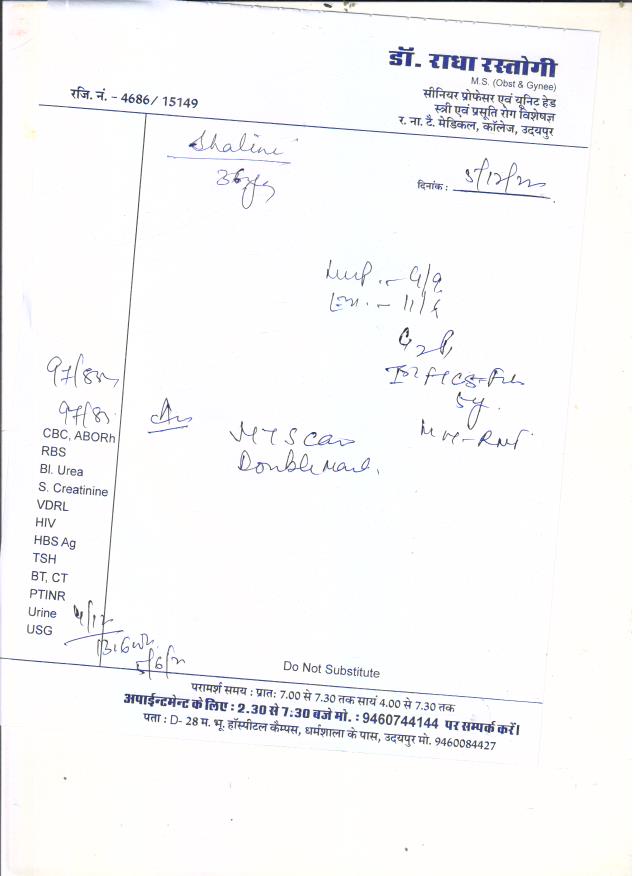 डॉ. राधा रस्तोगी
M.S. (Obst & Gynee)
सीनियर प्रोफेसर एवं यूनिट हेड
स्त्री एवं प्रसूति रोग विशेषज्ञ
र. ना. टै. मेडिकल, कॉलेज, उदयपुर
रजि. नं. - 4686/ 15149
Shalini
36yrs
दिनांक :
LMP. - 4/9
11/6
G2P1
5y.
97/
97/8
NT Scan
CBC, ABORh
RBS
Bl. Urea
S. Creatinine
VDRL
HIV
HBS Ag
TSH
BT, CT
PTINR
Urine
USG
4/12
Do Not Substitute
परामर्श समय : प्रातः 7.00 से 7.30 तक सायं 4.00 से 7.30 तक
अपाईन्टमेन्ट के लिए : 2.30 से 7:30 बजे मो. : 9460744144 पर सम्पर्क करें।
पता : D- 28 म. भू. हॉस्पीटल कैम्पस, धर्मशाला के पास, उदयपुर मो. 9460084427